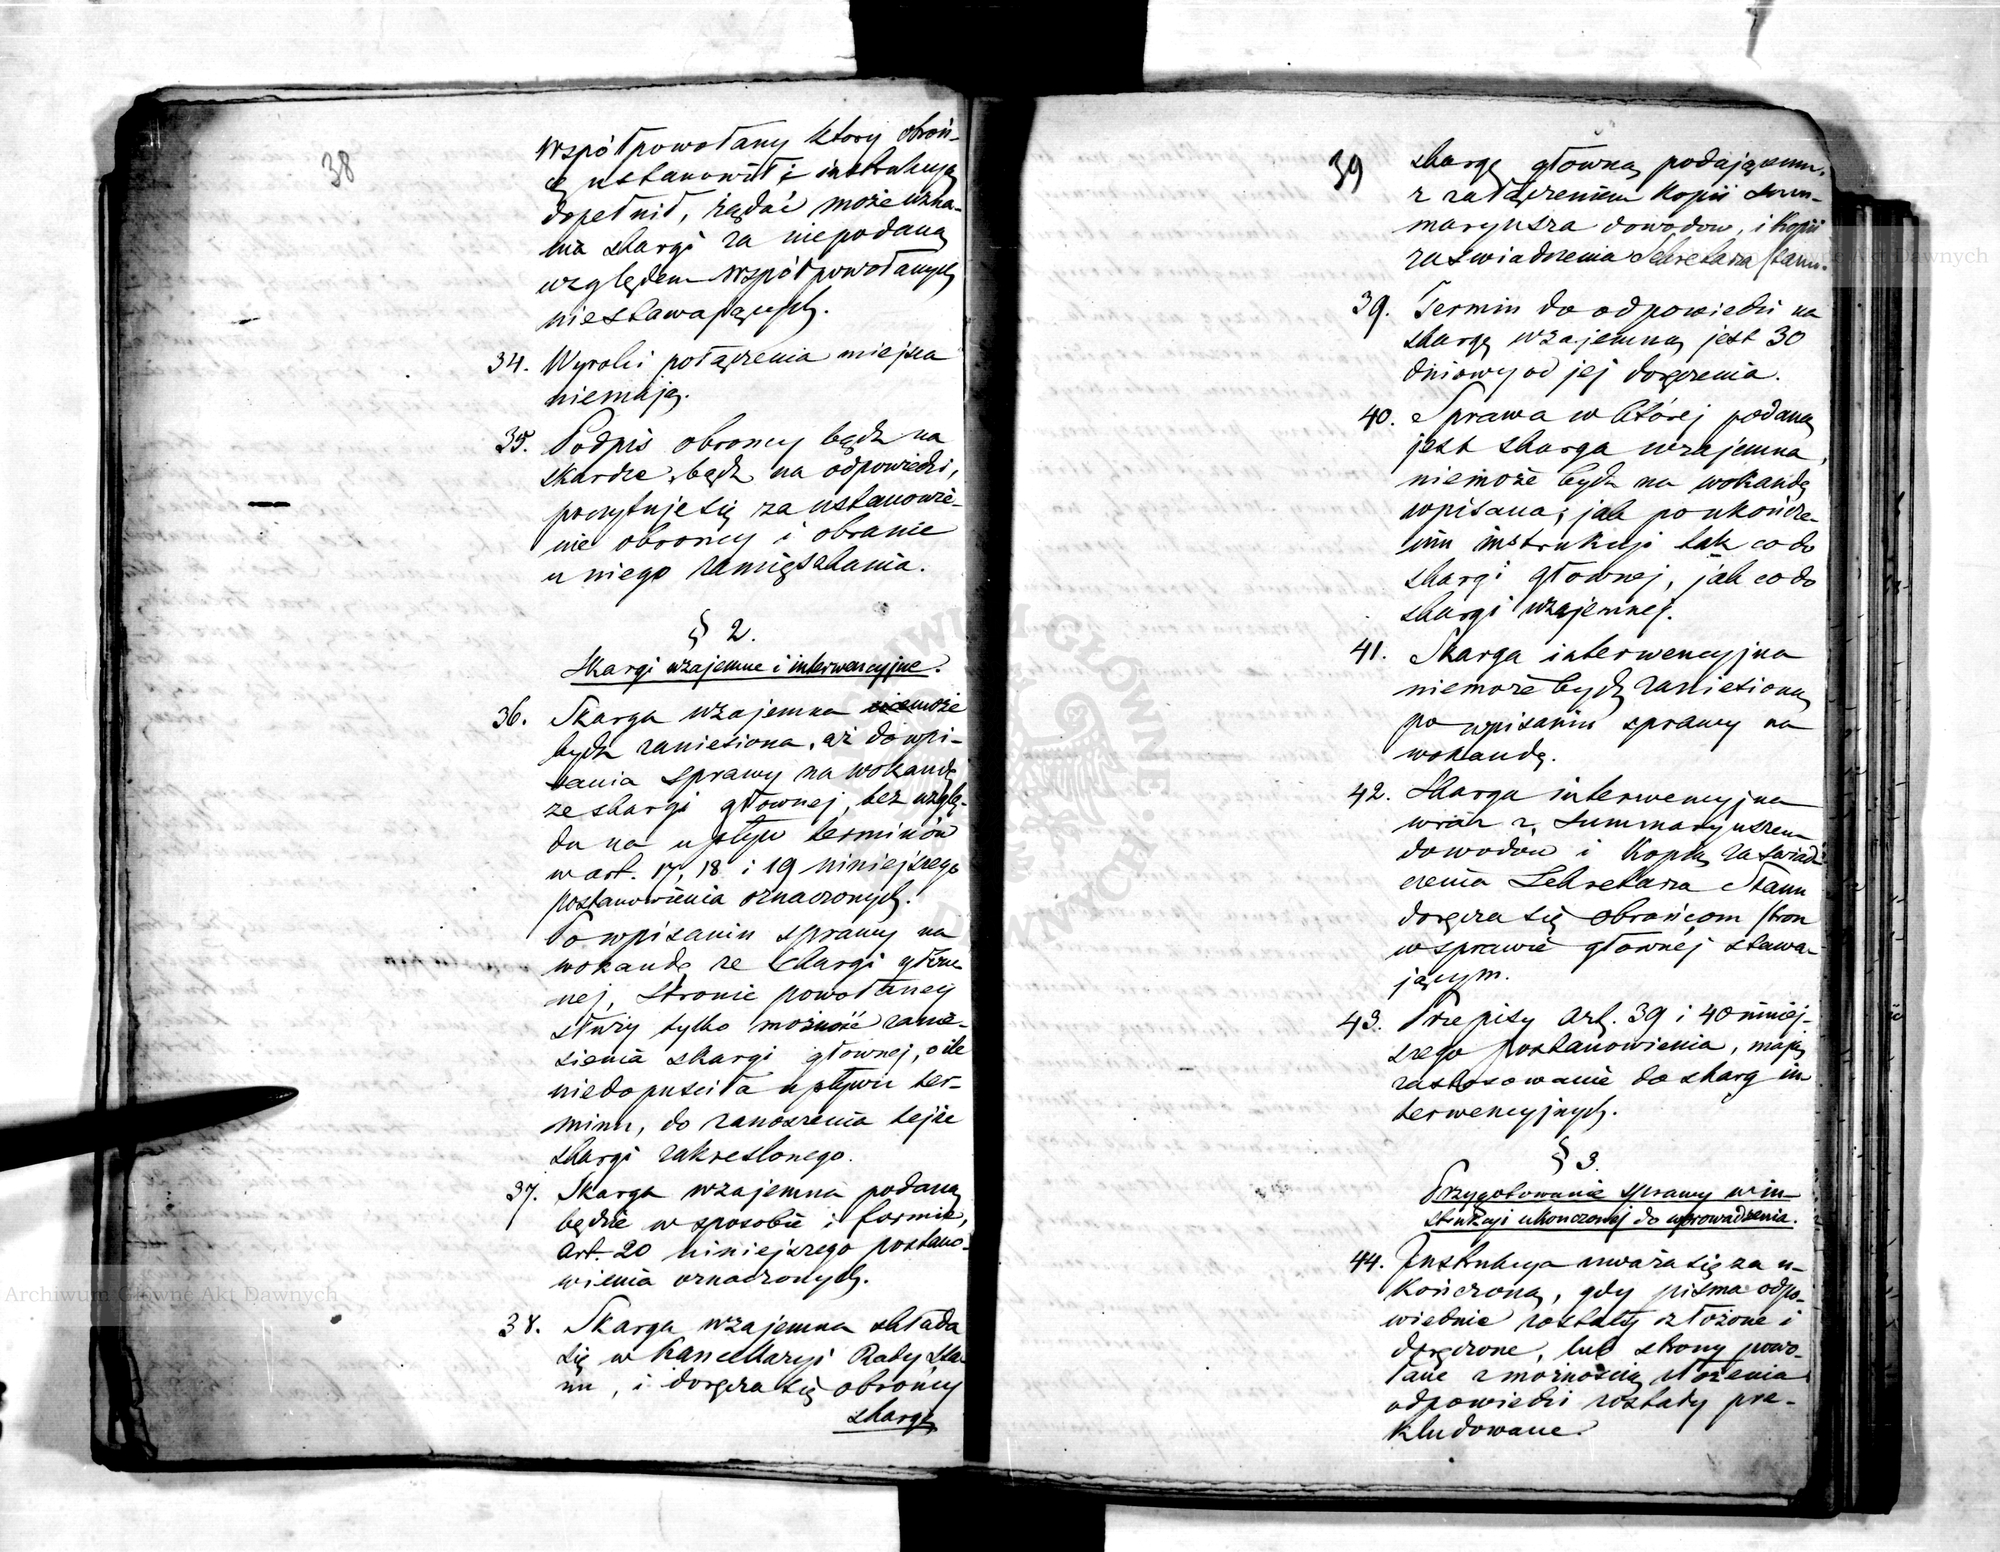 38
Współpowołany ktory obroń-
cę ustanowił i instrukcyą
dopełnił, żądać może uzna-
nia skargi za niepodaną
względem Współpowołanych
niestawających.
34. Wyroki połączenia miejsca
niemają.
35. Podpis obroncy bądz na
skardze, bądz na odpowiedzi,
poczytuje się za ustanowie-
nie obroncy i obranie
u niego zamięszkania.
§ 2.
Skargi wzajemne i interwencyjne.
36. Skarga wzajemna może
bydz zaniesiona, aż do wpi-
sania sprawy na wokandę
ze skargi głownej, bez wzglę-
du na upływ terminów
w art. 17, 18 i 19 niniejszego
postanowienia oznaczonych.
Po wpisaniu sprawy na
wokandę ze skargi głów-
nej, stronie powołaney
służy tylko możność zanie-
sienia skargi głownej, o ile
niedopuściła upływu ter-
minu, do zanoszenia tejże
skargi zakreslonego.
37. Skarga wzajemna podaną
będzie w sposobie i formie,
art. 20 niniejszego postano-
wienia oznaczonych.
38. Skarga wzajemna składa
się w Kancellaryi Rady Sta-
nu, i doręcza się obrońcy
skargę
39
skargę główną podającemu,
z załączeniem Kopii sum-
maryusza dowodow, i Kopii
zaświadczenia Sekretarza Stanu.
39. Termin do odpowiedzi na
skargę wzajemną jest 30
dniowy od jej doręczenia.
40. Sprawa w której podaną
jest skarga wzajemna,
niemoże bydz na wokandę
wpisana, jak po ukończe-
niu instrukcyi tak co do
skargi głownej, jak co do
skargi wzajemnej.
41. Skarga interwencyjna
niemoże bydz zaniesioną
po wpisaniu sprawy na
wokandę.
42. Skarga interwencyjna
wraz z summaryuszem
dowodow i Kopią zaświad-
czenia Sekretarza Stanu
doręcza się obrońcom stron
w sprawie głownej stawa-
jącym.
43. Przepisy art. 39 i 40 niniej-
szego postanowienia, mają
zastosowanie do skarg in-
terwencyjnych.
§ 3.
Przygotowanie sprawy w in-
strukcyi ukonczonej do wprowadzenia.
44. Instrukcya uważa się za u-
kończoną, gdy pisma odpo-
wiednie zostały złożone i
doręczone, lub strony powo-
łane z możnością złożenia
odpowiedzi zostały pre-
kludowane.
Archiwum Główne Akt Dawnych